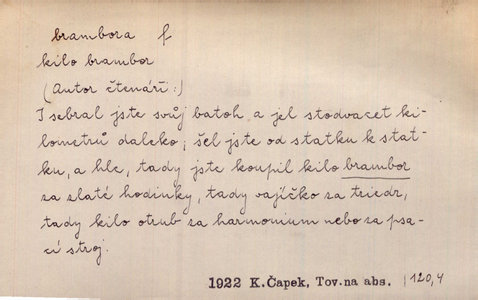 brambora f
kilo brambor
(Autor čtenáři:)
I sebral jste svůj batoh a jel stodvacet ki-
lometrů daleko; šel jste od statku k stat-
ku, a hle, tady jste koupil kilo brambor
za zlaté hodinky, tady vajíčko za triedr,
tady kilo otrub za harmonium nebo za psa-
cí stroj.
1922 K.Čapek, Tov.na abs. 120,4